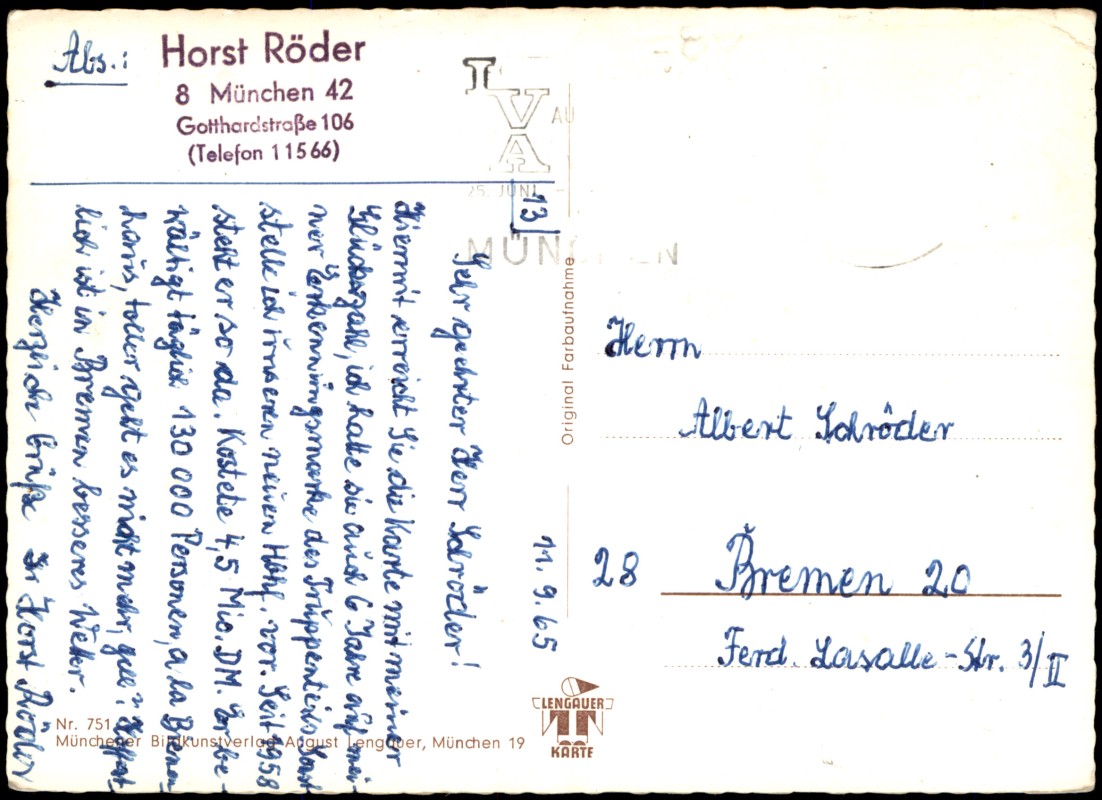 Abs.:
Horst Röder
8 München 42
Gotthardstraße 106
(Telefon 11566)
IVA
25. JUNI -
MÜNCHEN
13
11. 9. 65
Sehr geehrter Herr Schröder!
Hiermit erreicht Sie die Karte mit meiner
Glückszahl, ich hatte sie auch 6 Jahre auf mei-
ner Erkennungsmarke des Truppenteils. Sonst
stelle ich unseren neuen Hbhf. vor. Seit 1958
steht er so da. Kostete 4,5 Mio. DM. Er be-
wältigt täglich 130 000 Personen, a la Bienen
haus, toller geht es nicht mehr, gell? Hoffent
lich ist in Bremen besseres Wetter.
Herzliche Grüße Ihr Horst Röder
Original Farbaufnahme
Herrn
Albert Schröder
28 Bremen 20
Ferd. Lasalle-Str. 3/II
Nr. 751
Münchener Bildkunstverlag August Lengauer, München 19
LENGAUER
KARTE